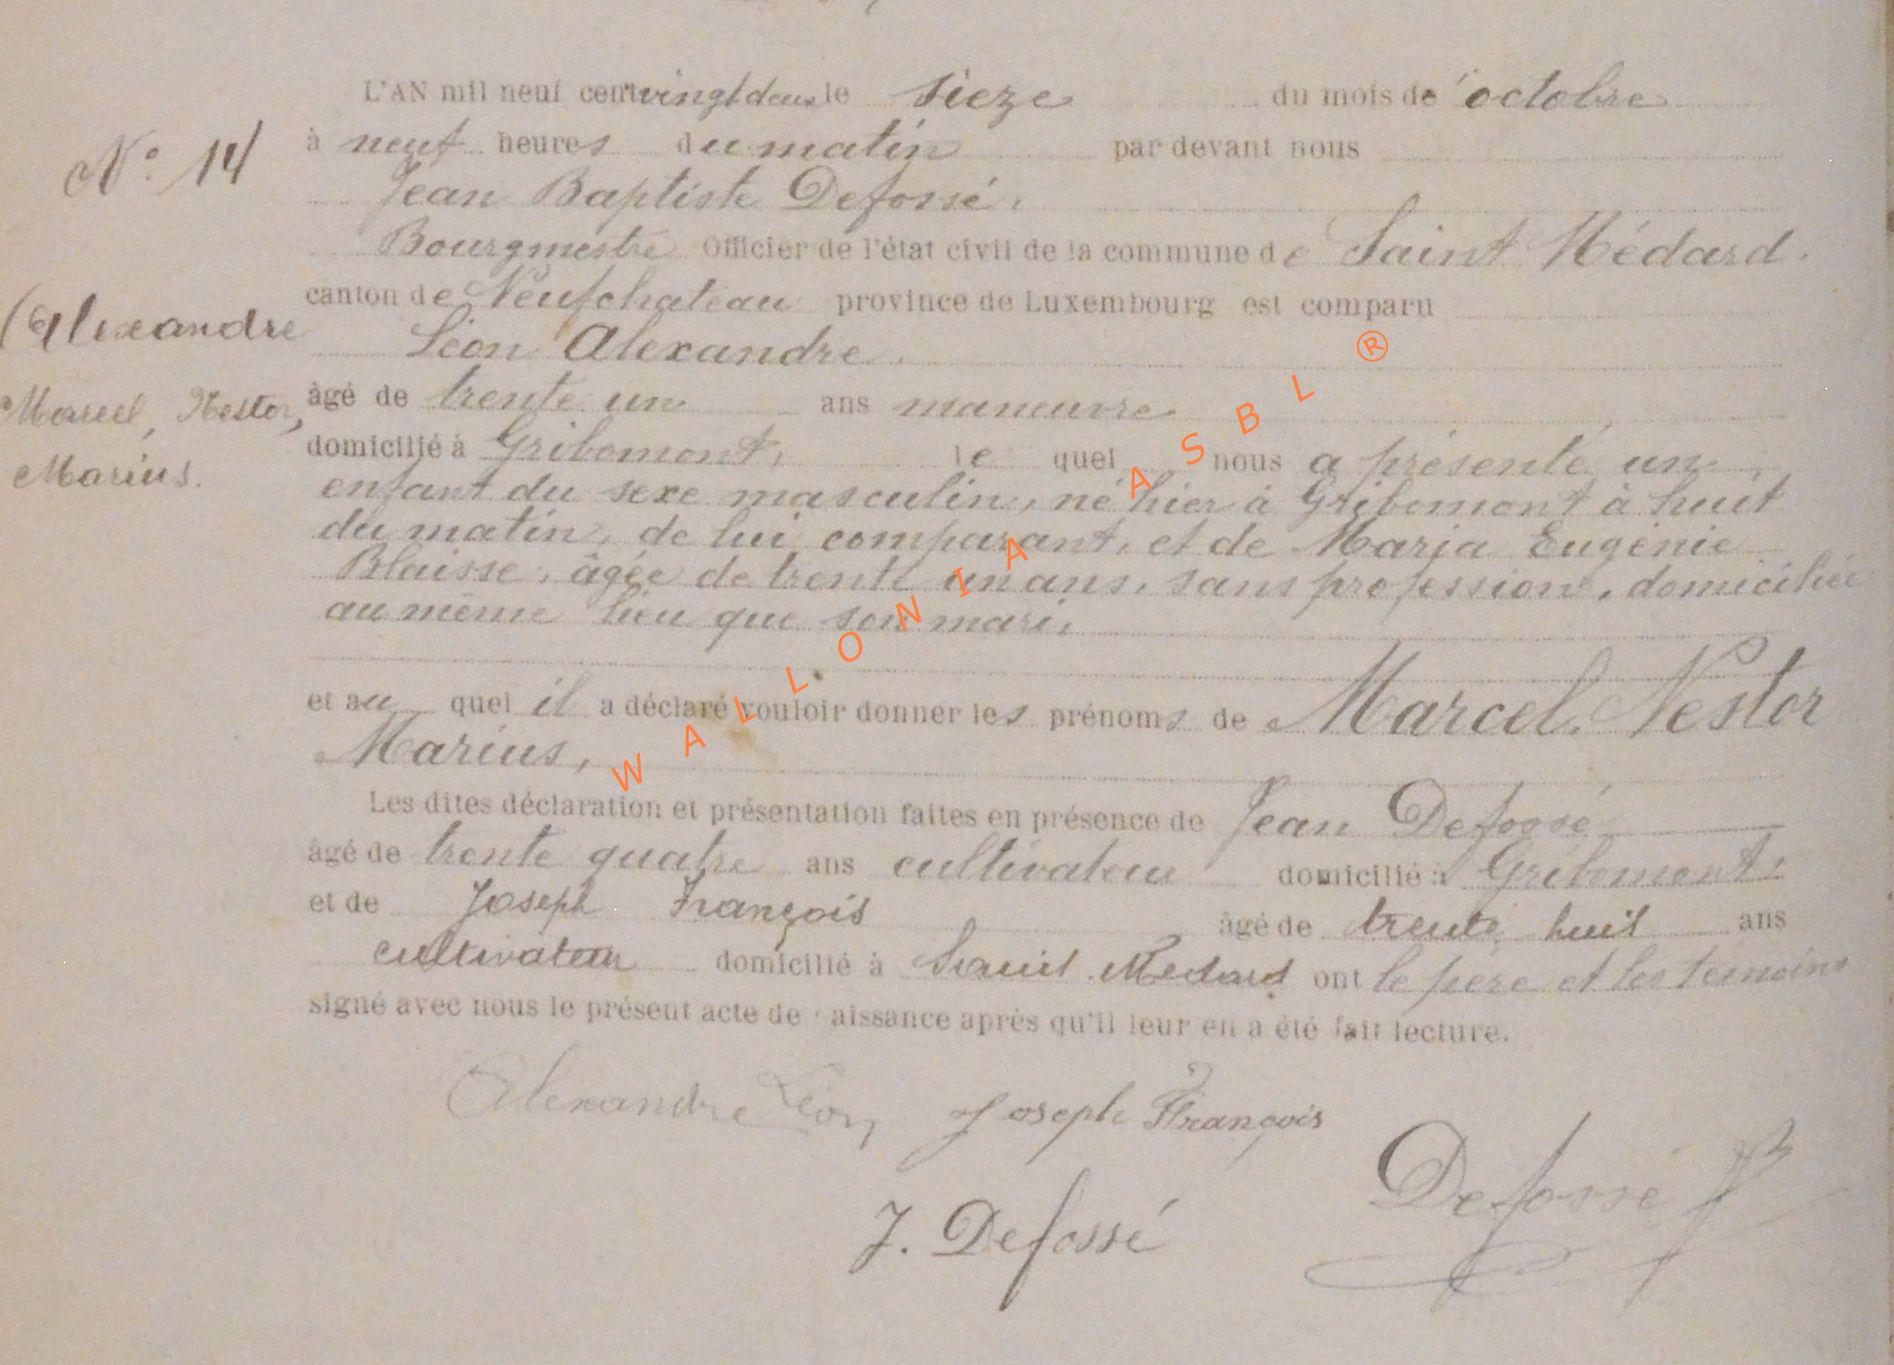 L'AN mil neuf cent vingt deux le sieze du mois de octobre
N° 14
à neuf heures du matin par devant nous
Jean Baptiste Defossé,
Bourgmestre Officier de l'état civil de la commune de Saint Médard.
canton de Neufchateau province de Luxembourg est comparu
Alexandre
Léon Alexandre.
Marcel, Nestor,
âgé de trente un ans maneuvre.
domicilié à Gribomont, le quel nous a présenté un
Marius.
enfant du sexe masculin, né hier à Gribomont à huit
du matin, de lui comparant, et de Maria Eugénie
Blaisse, âgée de trente un ans, sans profession, domiciliée
au même lieu que son mari,
et au quel il a déclaré vouloir donner les prénoms de Marcel, Nestor
Marius,
Les dites déclaration et présentation faites en présence de Jean Defossé
âgé de trente quatre ans cultivateur domicilié à Gribomont,
et de Joseph François âgé de trente huit ans
cultivateur domicilié à Saint Médard ont le père et les témoins
signé avec nous le présent acte de aissance après qu'il leur en a été fait lecture.
Alexandre Léon Joseph François
J. Defossé Defossé JB
WALLONIA ASBL ®